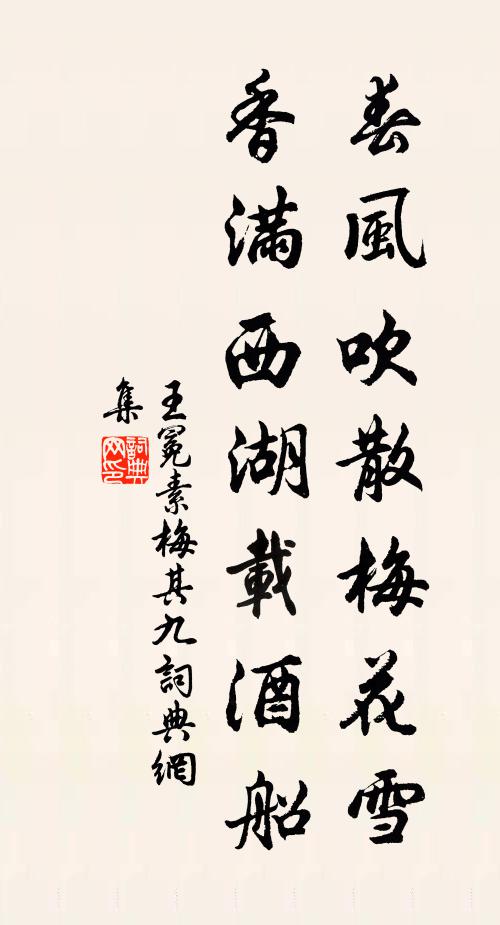 春風吹散梅花雪
香滿西湖載酒船
王冕素梅其九詞典網
集
詞典
网印